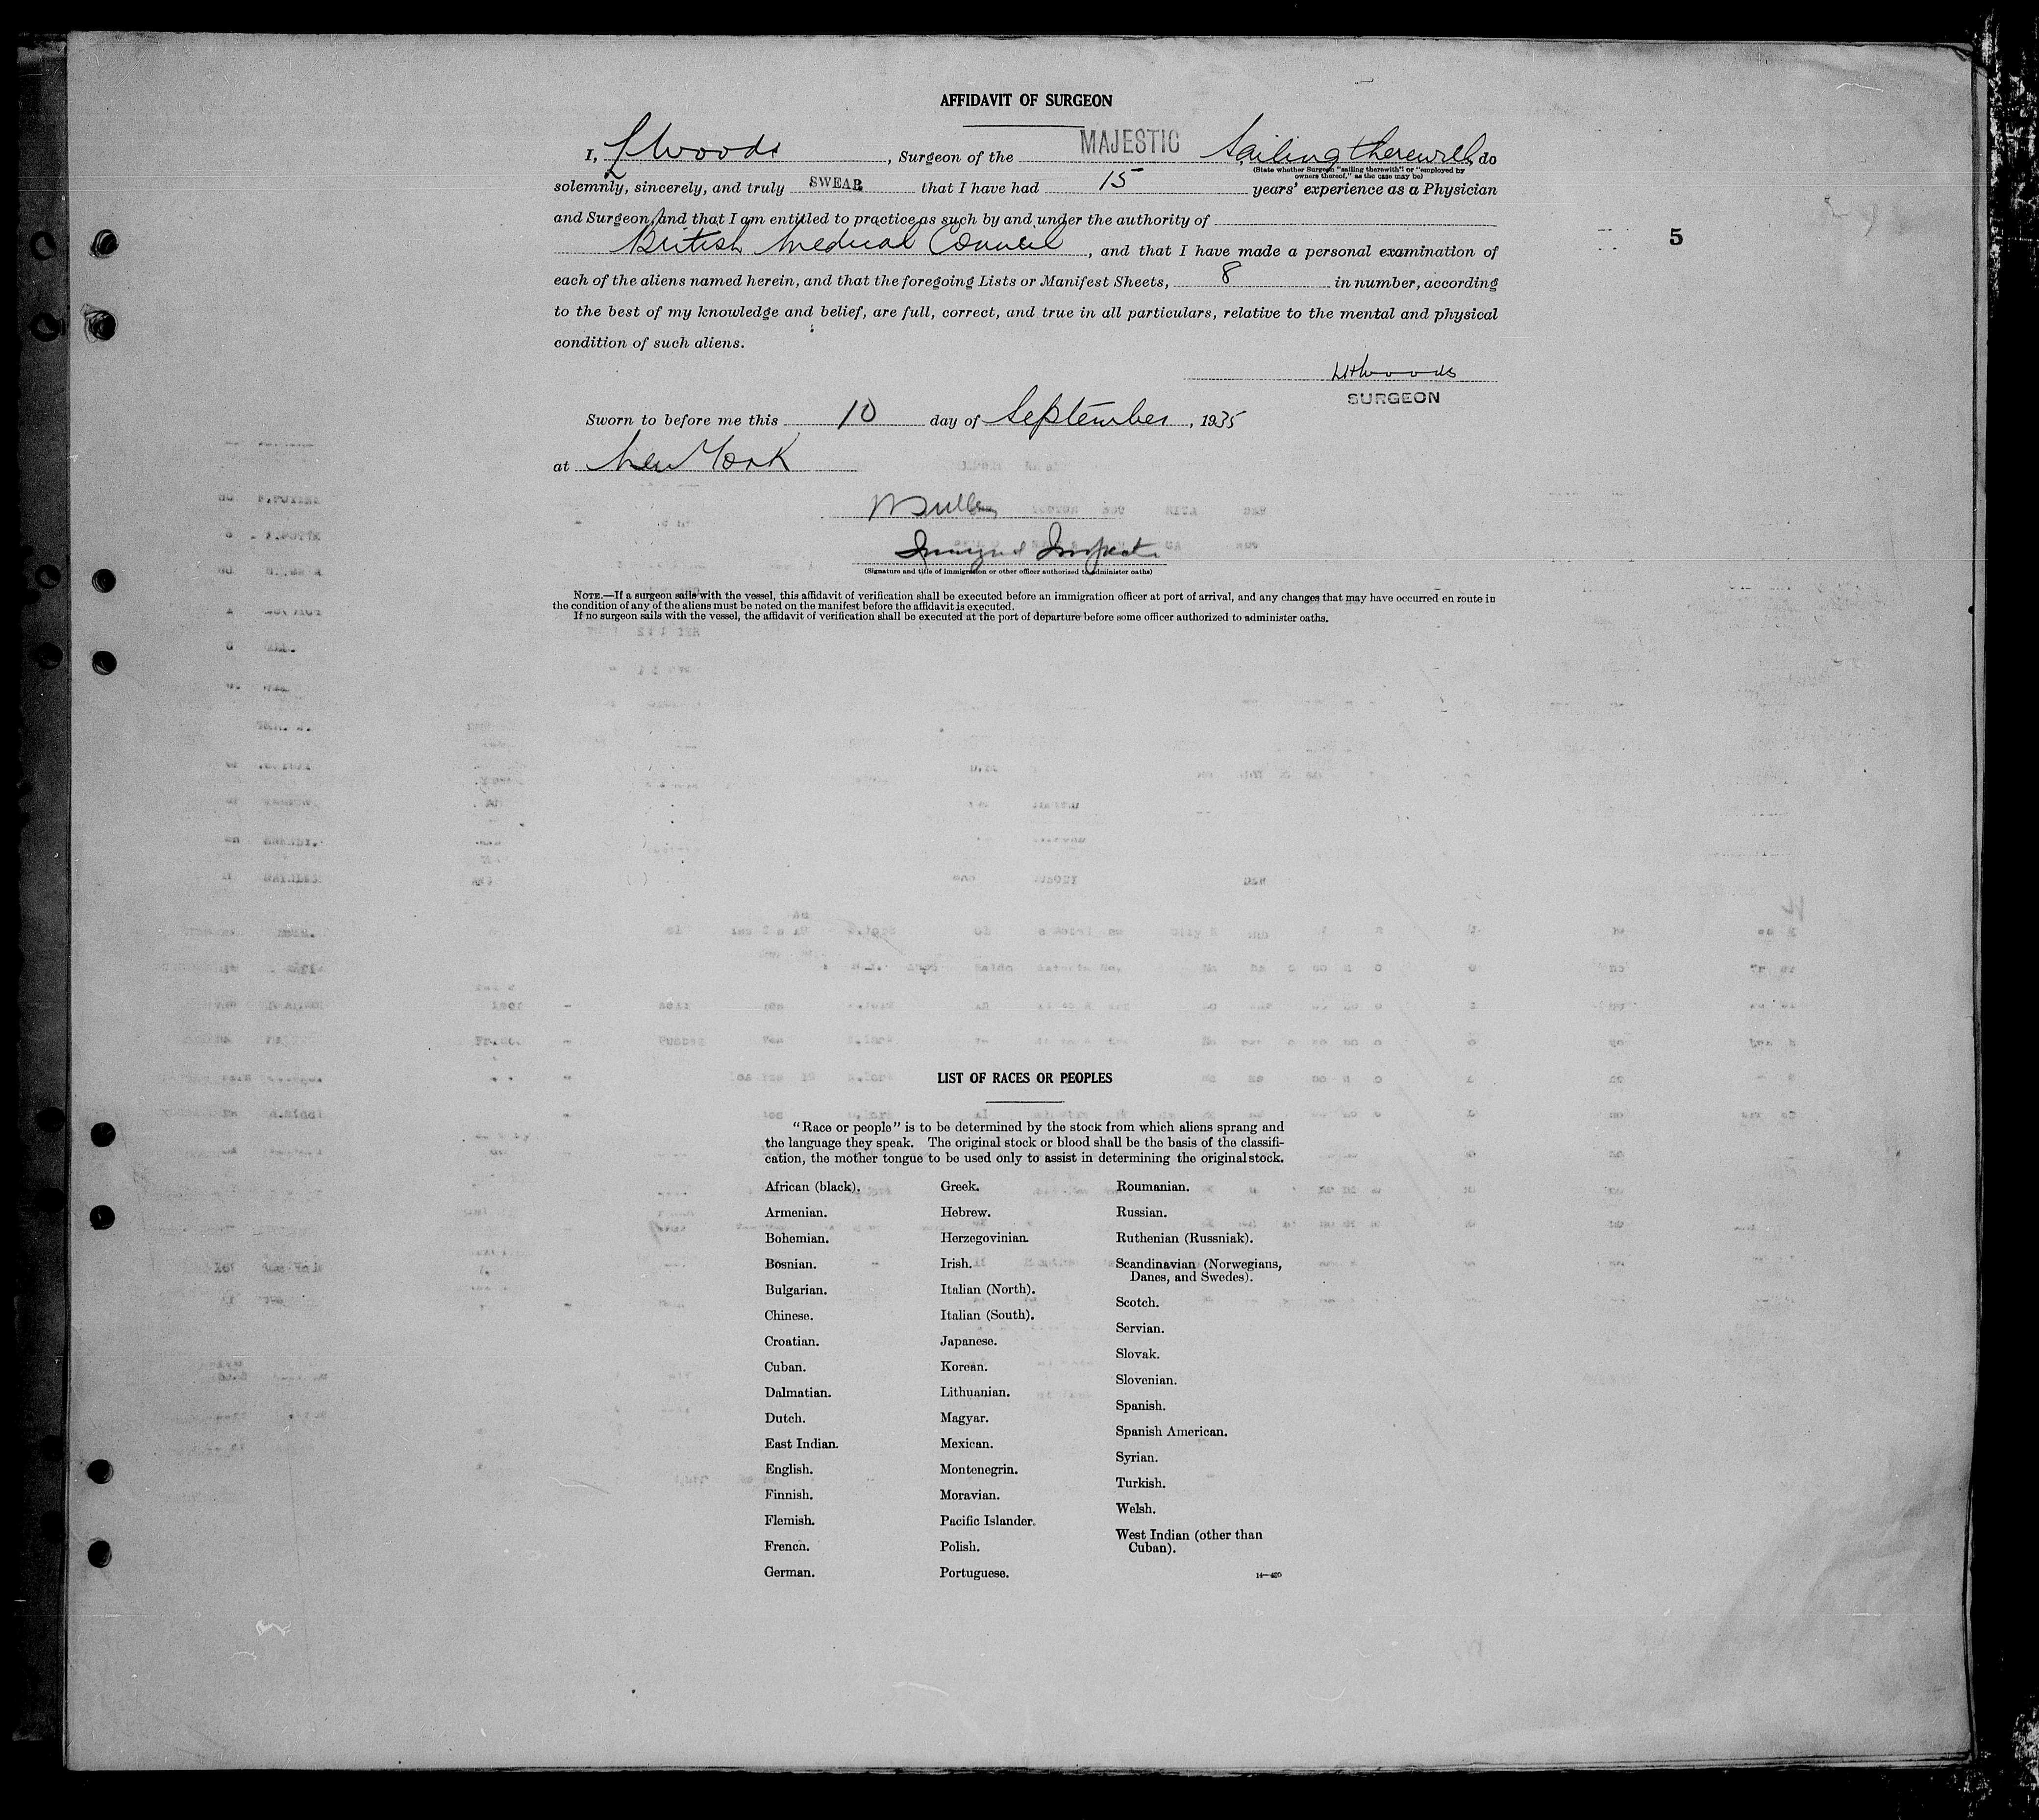 AFFIDAVIT OF SURGEON
I, L Woods, Surgeon of the MAJESTIC Sailing therewith, do
(State whether Surgeon "sailing therewith" or "employed by
owners thereof," as the case may be)
solemnly, sincerely, and truly SWEAR that I have had 15 years' experience as a Physician
and Surgeon, and that I am entitled to practice as such by and under the authority of
British Medical Council, and that I have made a personal examination of
each of the aliens named herein, and that the foregoing Lists or Manifest Sheets, 8 in number, according
to the best of my knowledge and belief, are full, correct, and true in all particulars, relative to the mental and physical
condition of such aliens.
5
Woods
SURGEON
Sworn to before me this 10 day of September, 1935
at New York
Immigrant Inspector
(Signature and title of immigration or other officer authorized to administer oaths)
NOTE.—If a surgeon sails with the vessel, this affidavit of verification shall be executed before an immigration officer at port of arrival, and any changes that may have occurred en route in
the condition of any of the aliens must be noted on the manifest before the affidavit is executed.
If no surgeon sails with the vessel, the affidavit of verification shall be executed at the port of departure before some officer authorized to administer oaths.
LIST OF RACES OR PEOPLES
"Race or people" is to be determined by the stock from which aliens sprang and
the language they speak. The original stock or blood shall be the basis of the classifi-
cation, the mother tongue to be used only to assist in determining the original stock.
African (black).
Armenian.
Bohemian.
Bosnian.
Bulgarian.
Chinese.
Croatian.
Cuban.
Dalmatian.
Dutch.
East Indian.
English.
Finnish.
Flemish.
French.
German.
Greek.
Hebrew.
Herzegovinian.
Irish.
Italian (North).
Italian (South).
Japanese.
Korean.
Lithuanian.
Magyar.
Mexican.
Montenegrin.
Moravian.
Pacific Islander.
Polish.
Portuguese.
Roumanian.
Russian.
Ruthenian (Russniak).
Scandinavian (Norwegians,
Danes, and Swedes).
Scotch.
Servian.
Slovak.
Slovenian.
Spanish.
Spanish American.
Syrian.
Turkish.
Welsh.
West Indian (other than
Cuban).